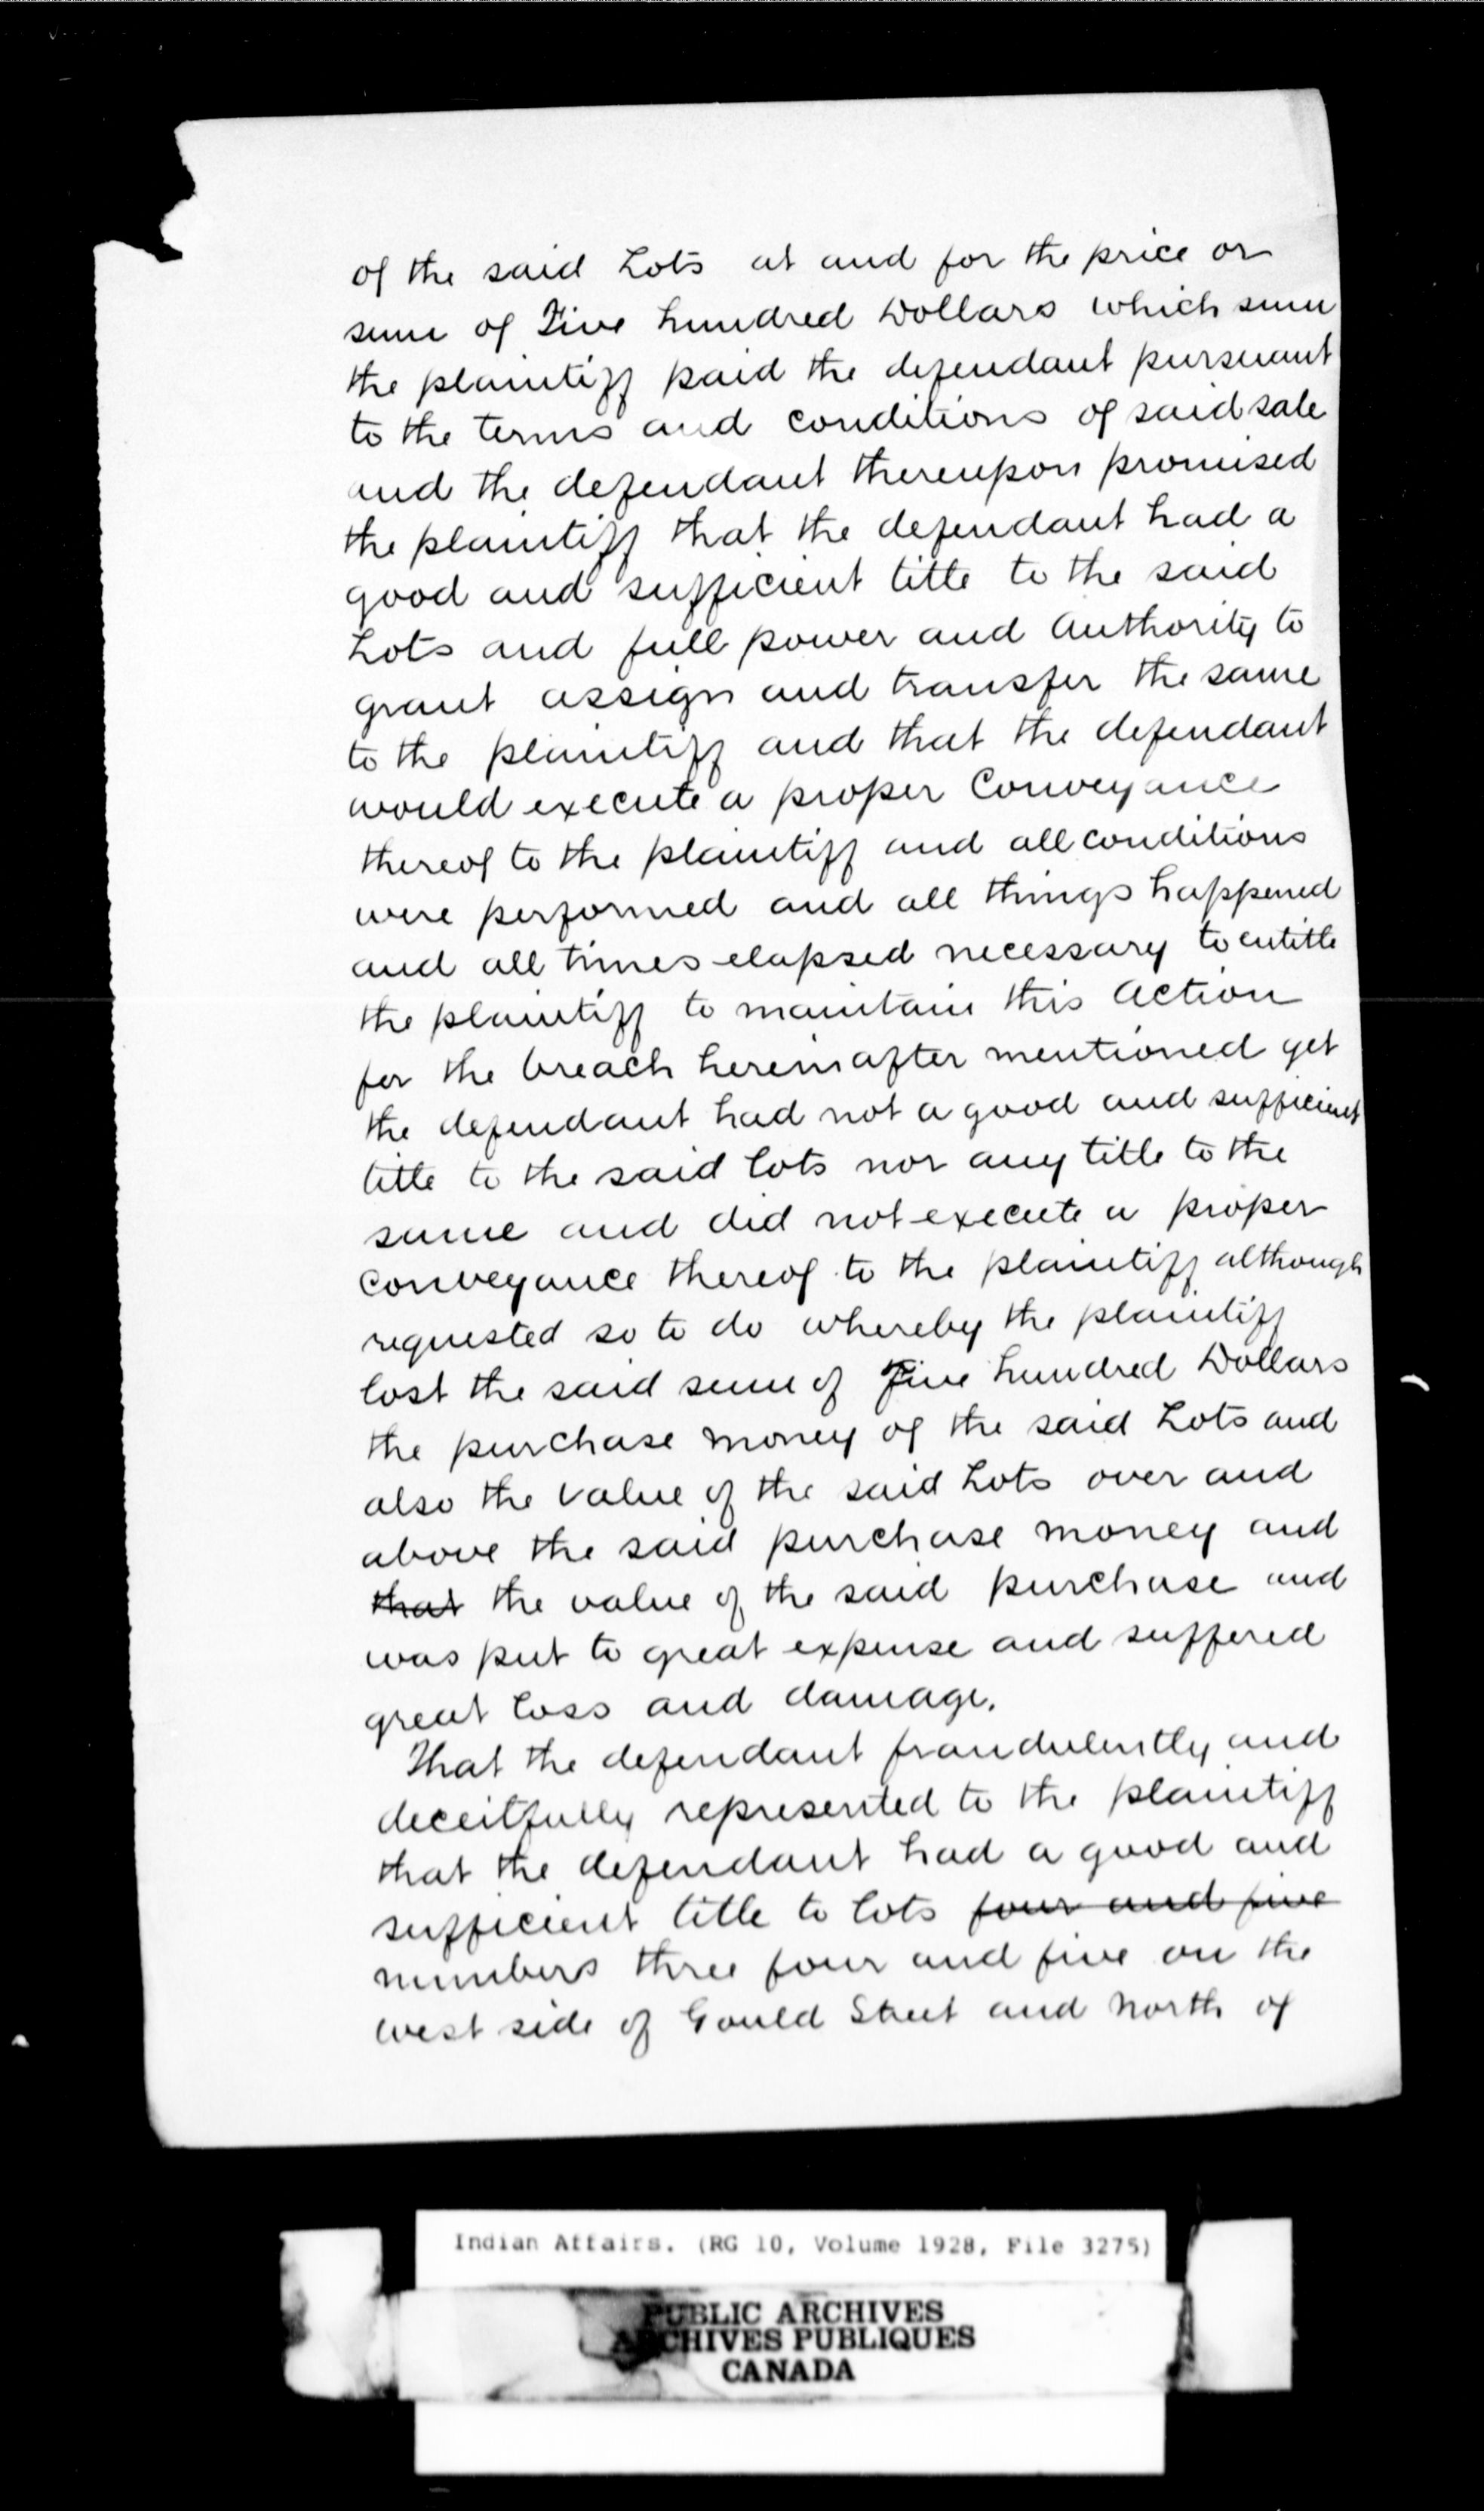 of the said Lots at and for the price or
sum of Five hundred Dollars which sum
the plaintiff paid the defendant pursuant
to the terms and conditions of said sale
and the defendant thereupon promised
the plaintiff that the defendant had a
good and sufficient title to the said
Lots and full power and authority to
grant assign and transfer the same
to the plaintiff and that the defendant
would execute a proper Conveyance
thereof to the plaintiff and all conditions
were performed and all things happened
and all times elapsed necessary to entitle
the plaintiff to maintain this action
for the breach hereinafter mentioned yet
the defendant had not a good and sufficient
title to the said lots nor any title to the
same and did not execute a proper
conveyance thereof to the plaintiff although
requested so to do whereby the plaintiff
lost the said sum of Five hundred Dollars
the purchase money of the said Lots and
also the value of the said Lots over and
above the said purchase money and
that the value of the said purchase and
was put to great expense and suffered
great loss and damage.
That the defendant fraudulently and
deceitfully represented to the plaintiff
that the defendant had a good and
sufficient title to lots four and five
numbers three four and five on the
west side of Gould Street and north of
Indian Affairs. (RG 10, Volume 1928, File 3275)
PUBLIC ARCHIVES
ARCHIVES PUBLIQUES
CANADA